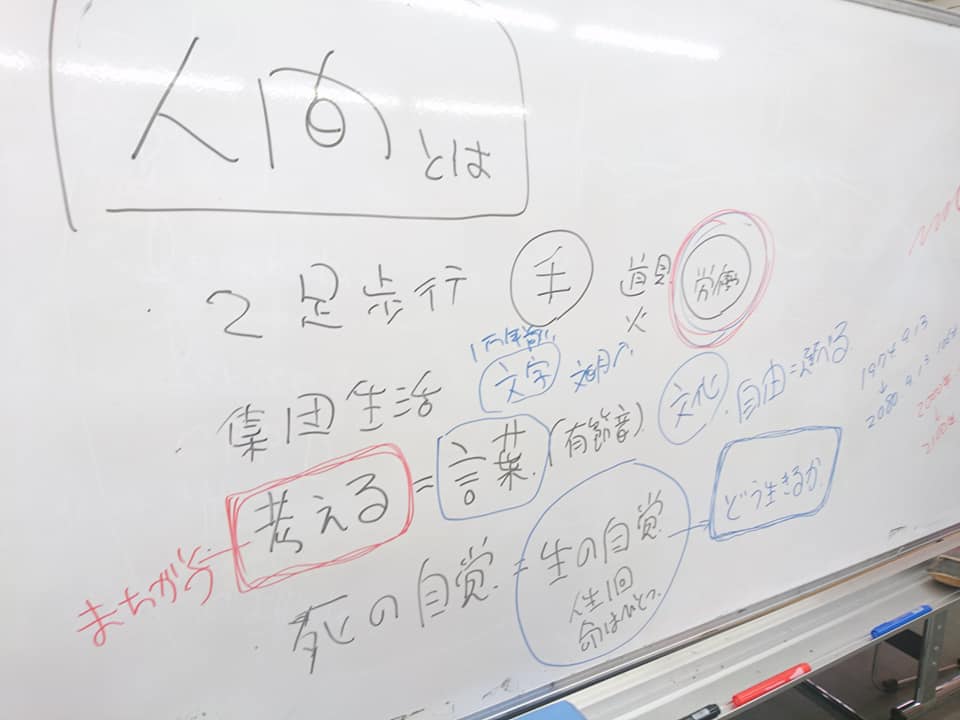 人間とは
2足歩行 手 道具 労働
火
1万年前
集団生活 文字 文明 文化 自由=選べる
考える=言葉(有節音)
まちがう
死の自覚=生の自覚 どう生きるか
人生1回
命はひとつ
1974 9.13
↓
2080.9.13
2000年
↓
2100年